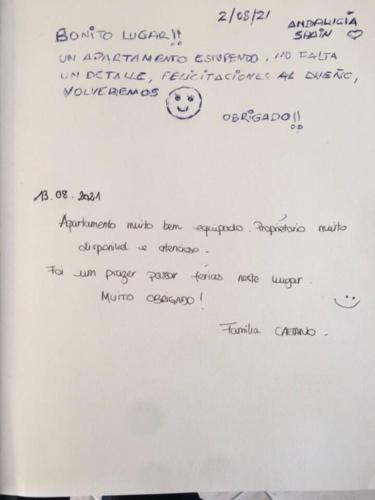 2/08/21
ANDALUCIA
SPAIN
BONITO LUGAR!!
UN APARTAMENTO ESTUPENDO. NO FALTA
UN DETALLE, FELICITACIONES AL DUEÑO,
VOLVEREMOS
OBRIGADO!!
13.08.2021
Apartamento muito bem equipado. Proprietário muito
disponível e atencioso.
Foi um prazer passar férias neste lugar.
MUITO OBRIGADO!
Família CAETANO.